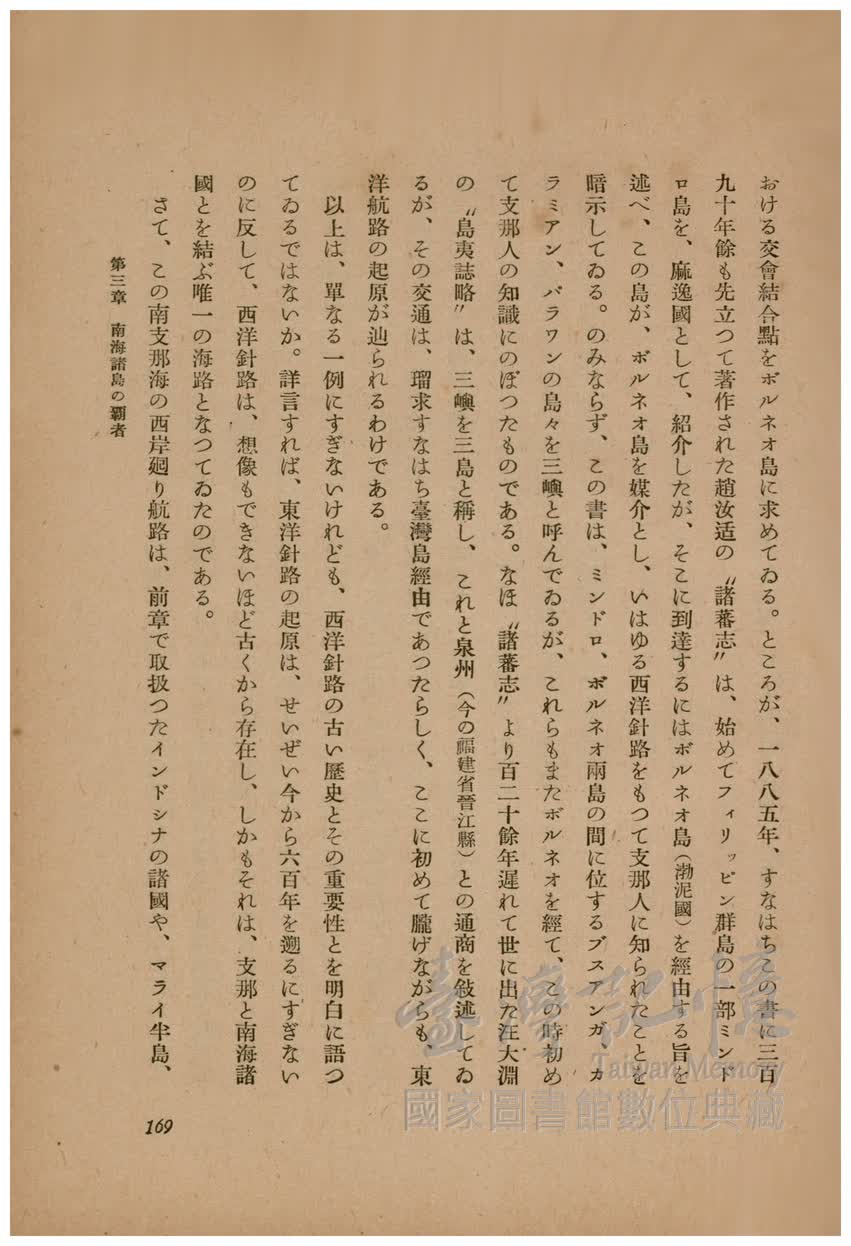 おける交會結合點をボルネオ島に求めてゐる。ところが、一八八五年、すなはちこの書に三百
九十年餘も先立つて著作された趙汝适の〝諸蕃志〟は、始めてフィリッピン群島の一部ミンド
ロ島を、麻逸國として、紹介したが、そこに到達するにはボルネオ島(渤泥國)を經由する旨を
述べ、この島が、ボルネオ島を媒介とし、いはゆる西洋針路をもつて支那人に知られたことを
暗示してゐる。のみならず、この書は、ミンドロ、ボルネオ兩島の間に位するブスアンガ、カ
ラミアン、パラワンの島々を三嶼と呼んでゐるが、これらもまたボルネオを經て、この時初め
て支那人の知識にのぼつたものである。なほ〝諸蕃志〟より百二十餘年遲れて世に出た汪大淵
の〝島夷誌略〟は、三嶼を三島と稱し、これと泉州(今の福建省晉江縣)との通商を敍述してゐ
るが、その交通は、瑠求すなはち臺灣島經由であつたらしく、ここに初めて朧げながらも、東
洋航路の起原が辿られるわけである。
以上は、單なる一例にすぎないけれども、西洋針路の古い歷史とその重要性とを明白に語つ
てゐるではないか。詳言すれば、東洋針路の起原は、せいぜい今から六百年を遡るにすぎない
のに反して、西洋針路は、想像もできないほど古くから存在し、しかもそれは、支那と南海諸
國とを結ぶ唯一の海路となつてゐたのである。
さて、この南支那海の西岸廻り航路は、前章で取扱つたインドシナの諸國や、マライ半島、
第三章 南海諸島の覇者
169
臺灣記憶
Taiwan Memory
國家圖書館數位典藏